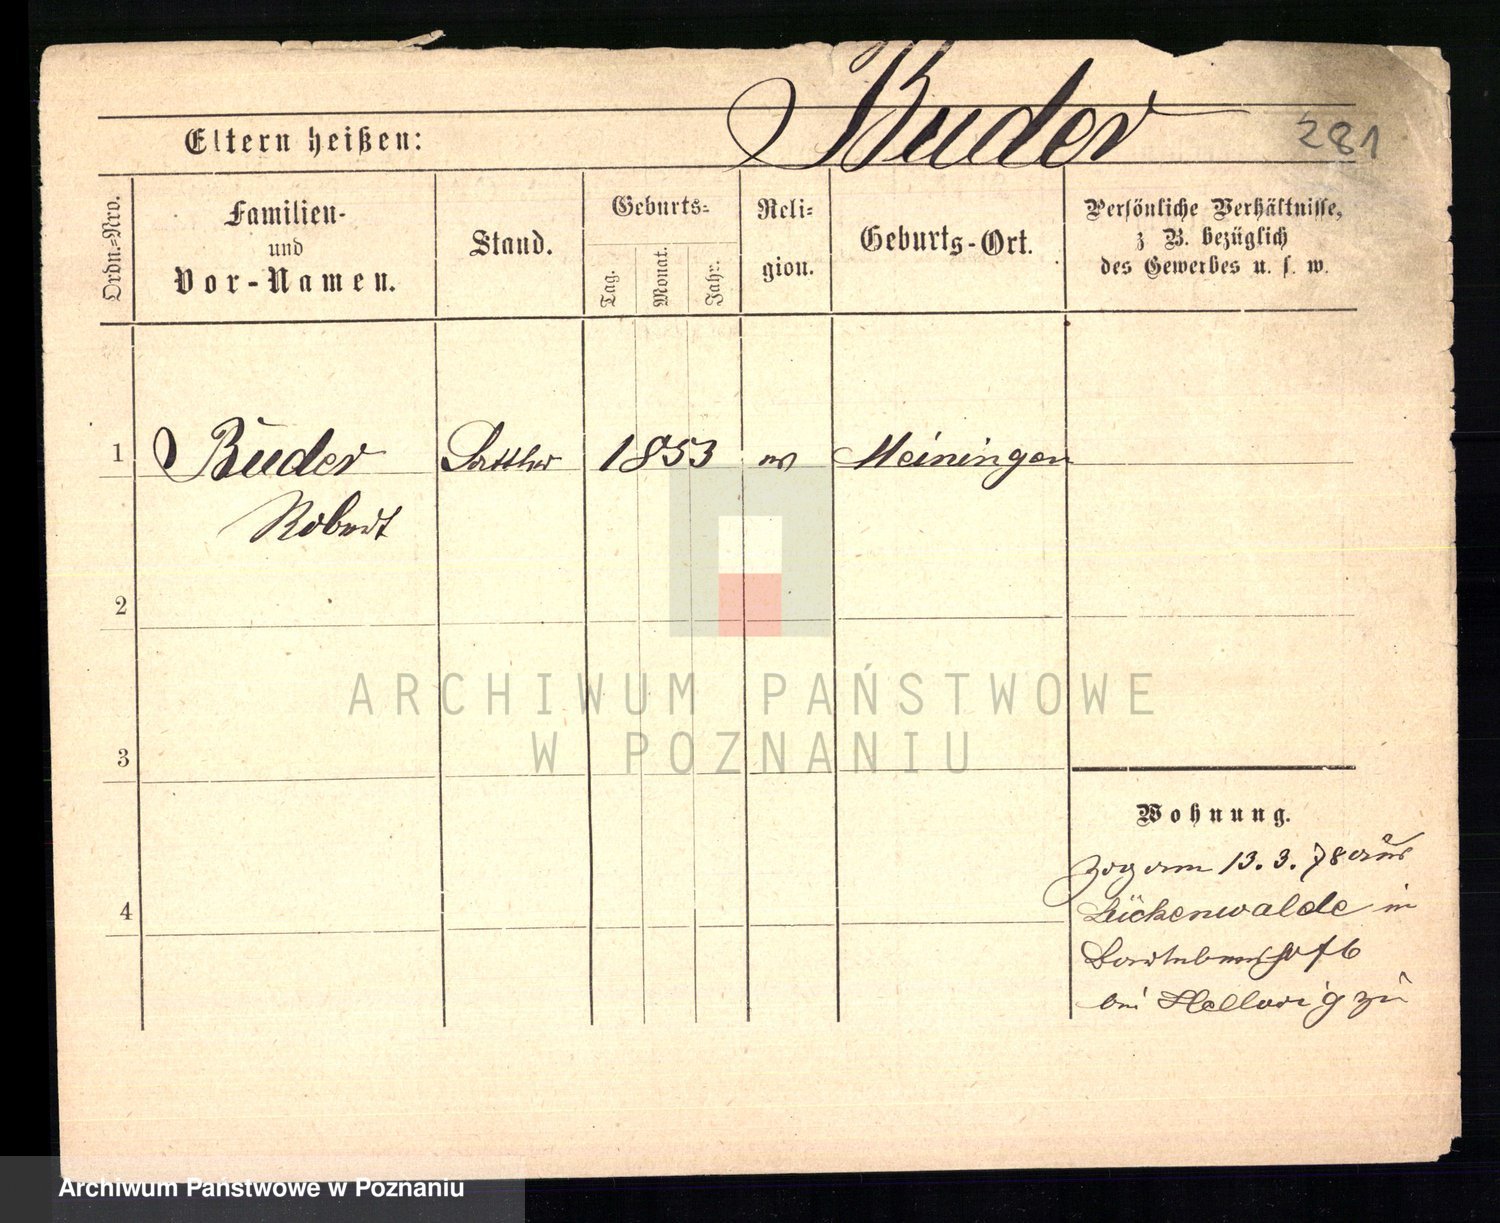 Buder
281
Eltern heißen:
Ordn.-Nro.
Familien-
und
Vor-Namen.
Stand.
Geburts-
Tag.
Monat.
Jahr.
Reli-
gion.
Geburts-Ort.
Persönliche Verhältnisse,
z B. bezüglich
des Gewerbes u. s. w.
1 Buder Sattler 1853 ev Meiningen
Robert
2
ARCHIWUM PAŃSTWOWE
W POZNANIU
3
Wohnung.
zog am 13. 3. 78 aus
Luckenwalde in
4
bei Hellwig zu
Archiwum Państwowe w Poznaniu